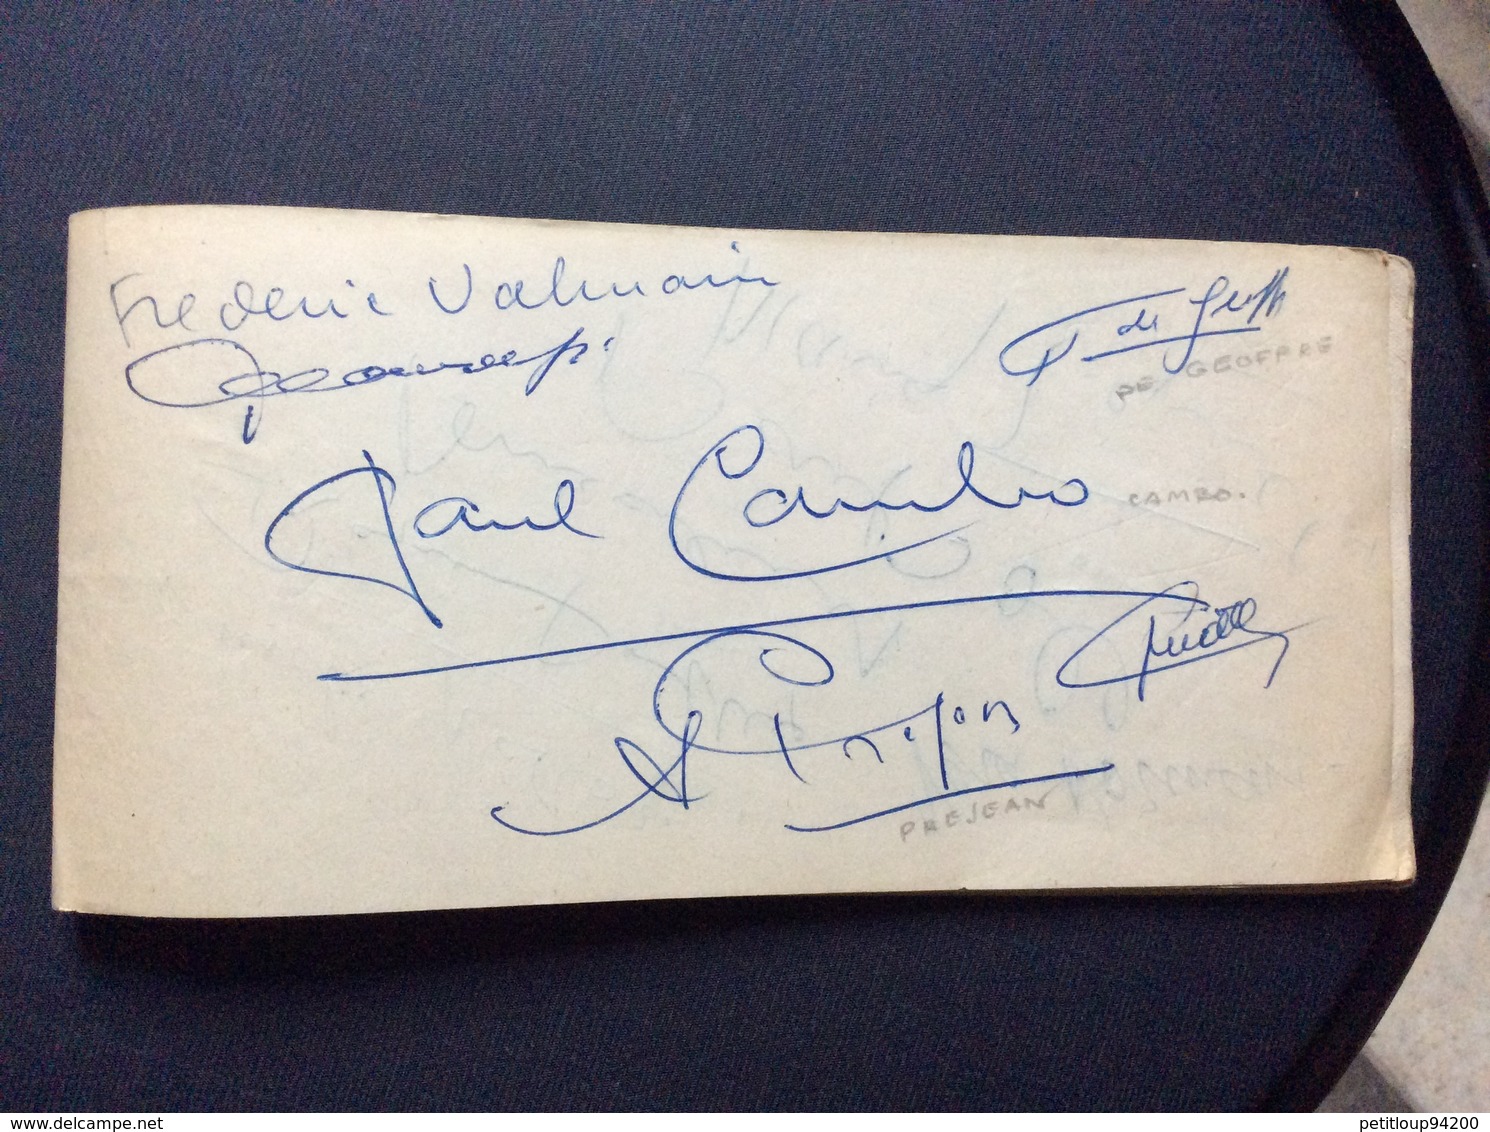 Frederic Valmain
de Geoffre
DE GEOFFRE
Paul Cambo
CAMBO.
A Préjean
PREJEAN
www.delcampe.net
petitloup94200